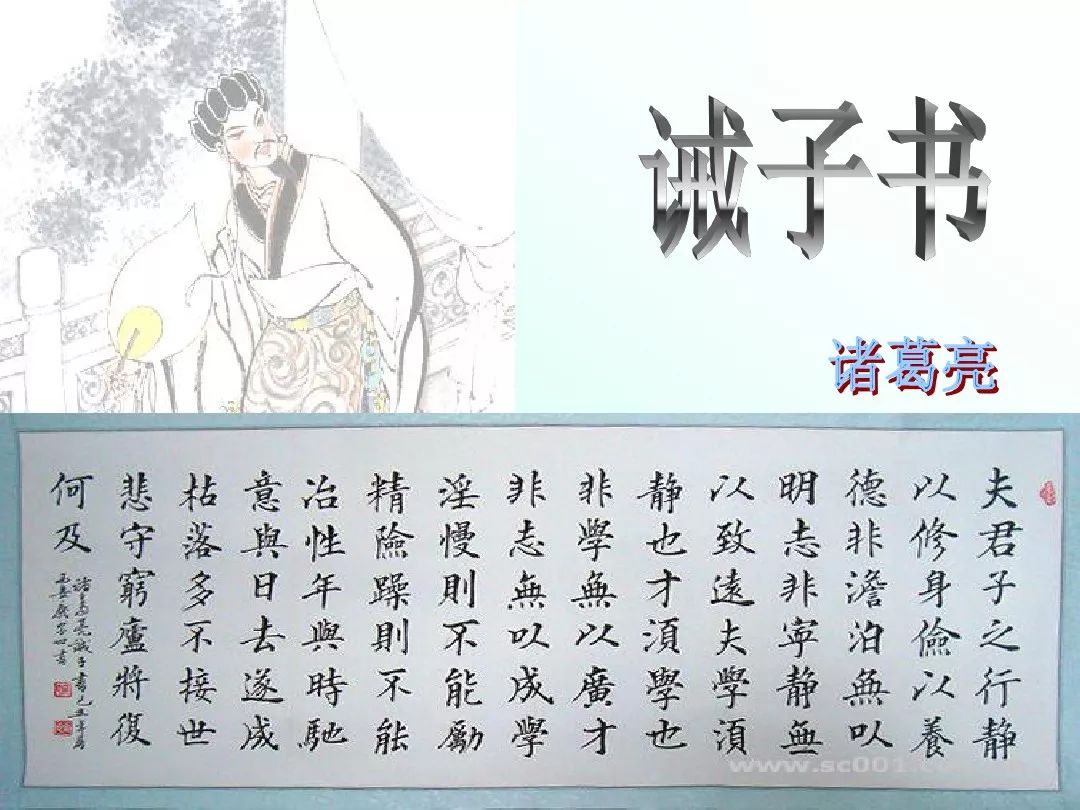 诫子书
诸葛亮
夫君子之行静
以修身儉以養
德非澹泊無以
明志非寧静無
以致遠夫學湏
静也才湏學也
非學無以廣才
非志無以成學
淫慢則不能勵
精險躁則不能
冶性年與時馳
意與日去遂成
枯落多不接世
悲守窮廬將復
何及
諸葛亮誡子書己丑年
www.sc001.c